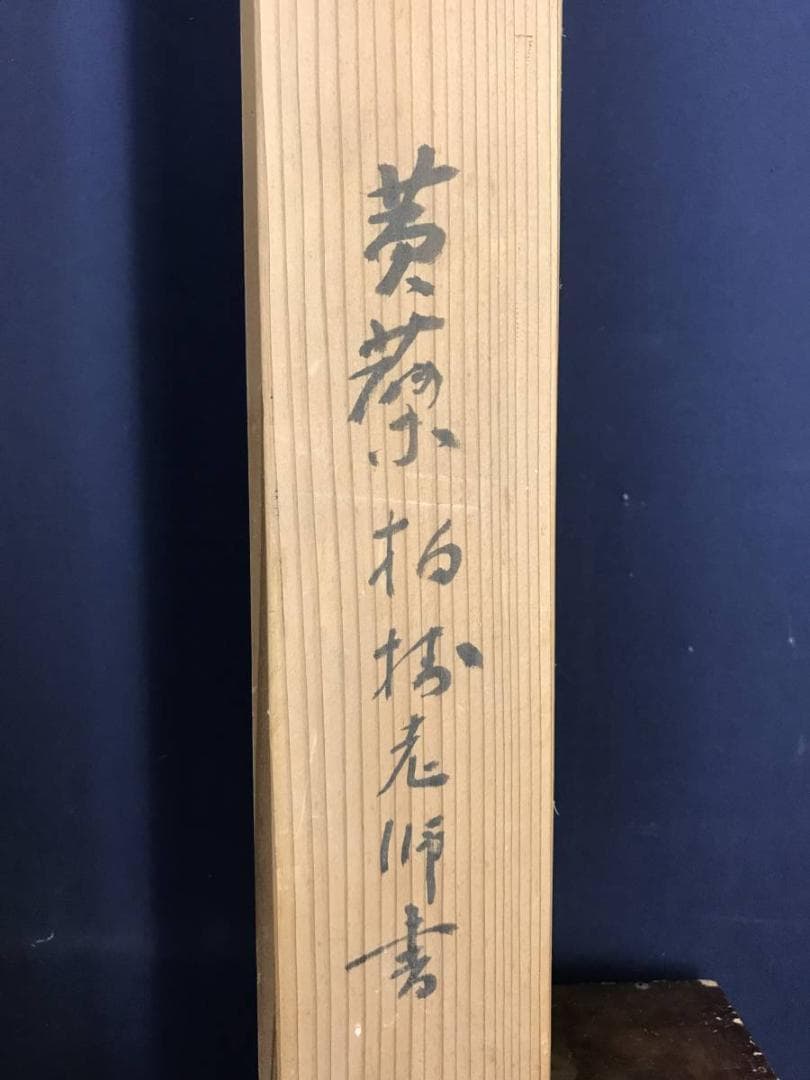 黄蘗柏樹老師書